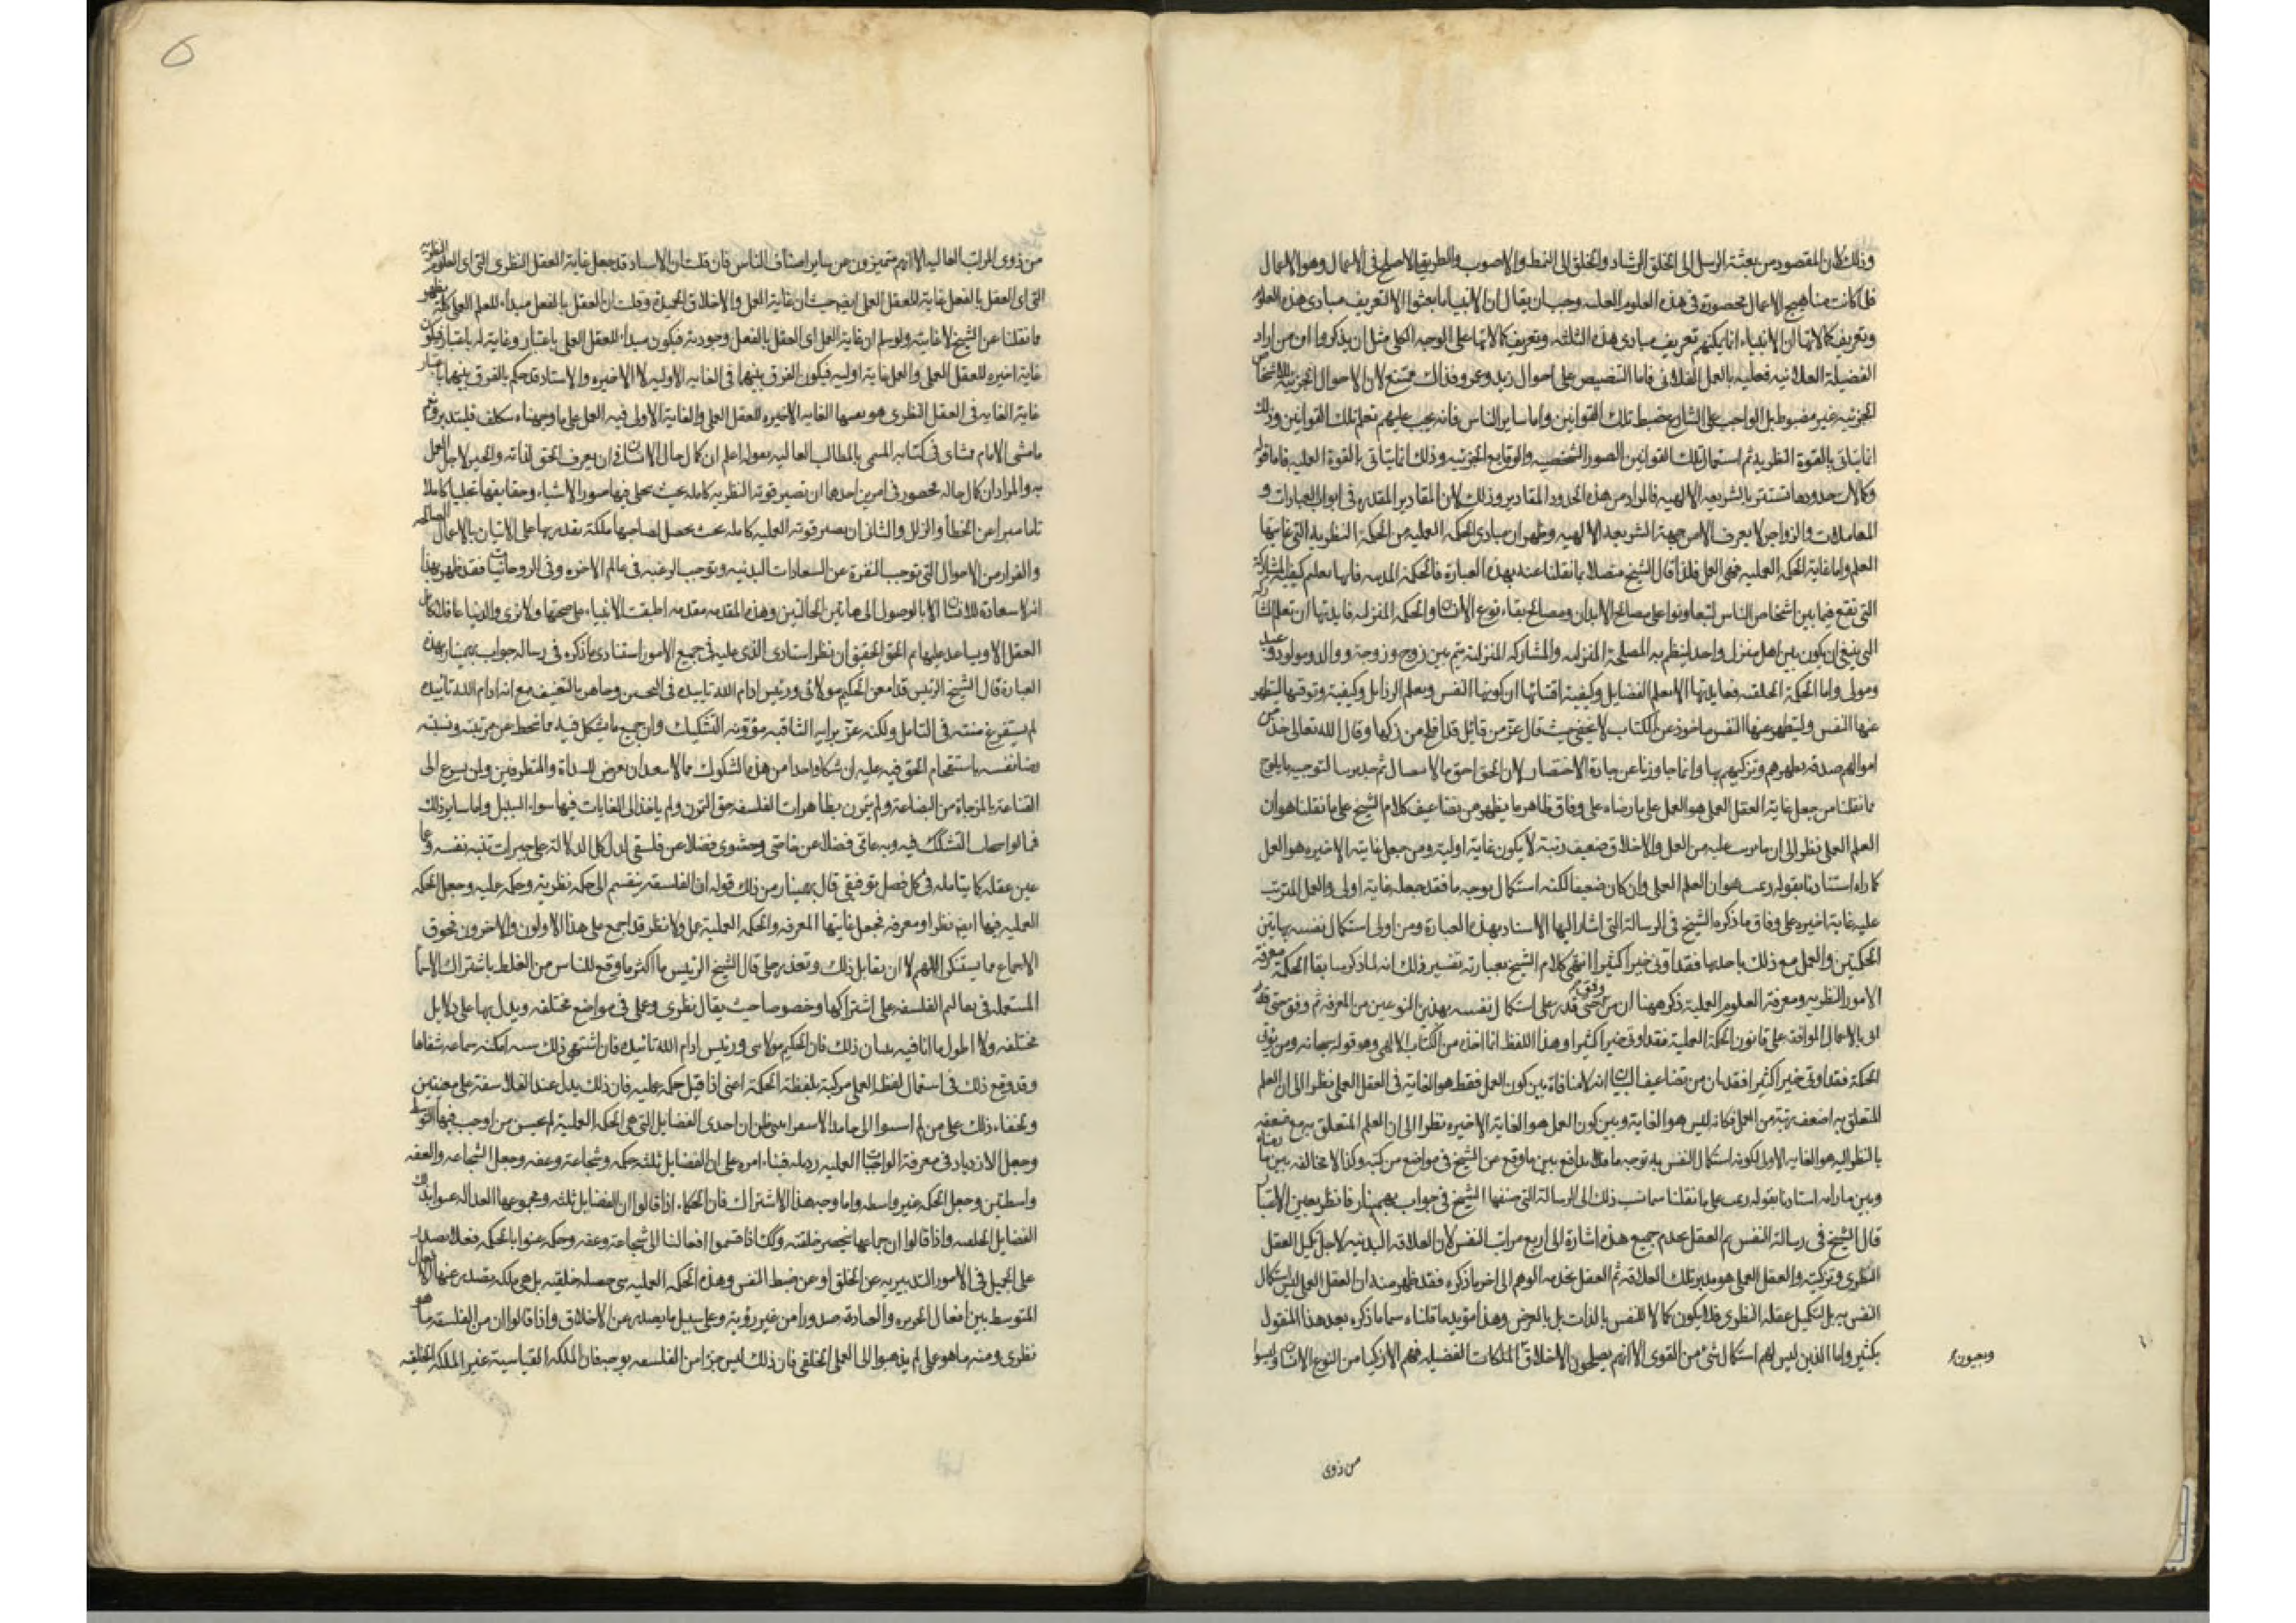 وذلك لان المقصود من بعثة الرسل الى الخلق الرشاد والخلق الى النمط والاصوب والطريق الاصلح فى الاعمال وهو الاعمال
فلما كانت مناهج الاعمال محصورة فى هذه العلوم وجب ان يقال ان الانبياء ما بعثوا الا لتعريف مبادى هذه العلوم
وتعريف كمالاتها ان الانبياء انما يمكنهم تعريف مبادى هذه الثلثة وتعريف كمالاتها على الوجه الكلى مثل ان يذكروا ان من اراد
الفضيلة الفلانيه فعليه بالعمل الفلانى فاما التنصيص على احوال زيد وعمرو فذلك ممتنع لان الاحوال الجزئية للاشخاص
الجزئيه غير مضبوط بل الواجب على الشارع ضبط تلك القوانين واما ساير الناس فانه يجب عليهم تعلم تلك القوانين وذلك
انما يتاتى بالقوة النظريه ثم استعمال تلك القوانين الصور الشخصيه والوقايع الجزئيه وذلك انما يتاتى بالقوة العمليه فاما قوله
وكمالات حدودها تستتر بالشريعه الالهيه فالمراد من هذه الحدود المقادير وذلك لان المقادير المقدره فى ابواب العبادات و
المعاملات والزواجر لا يعرف الا من جهة الشريعه الالهيه وظهر ان مبادى الحكمة العمليه من الحكمة النظريه التى غايتها
العلم واما غاية الحكمه العمليه فهى العمل فلذا قال الشيخ متصلا بما نقلنا عنه بهذه العبارة فالحكمة المدنيه فايدتها ان يعلم كيفية المشاركة
التى تقع فيما بين اشخاص الناس ليتعاونوا على مصالح الابدان ومصالح بقاء نوع الانسان والحكمه المنزليه فايدتها ان تعلم المشاركه
التى ينبغى ان يكون بين اهل منزل واحد لينظم به المصلحة المنزليه والمشاركه المنزلية تتم بين زوج وزوجة ووالد ومولود وعبد
ومولى واما الحكمة الخلقيه ففايدتها ان تعلم الفضايل وكيفية اقتنائها لتزكو بها النفس وتعلم الرذايل وكيفية توقيها لتطهر
عنها النفس ولتطهر عنها النفس ماخوذ عن الكتاب حيث قال عز من قائل قد افلح من زكيها وقال الله تعالى خذ من
اموالهم صدقه تطهرهم وتزكيهم بها
مما نقلنا من جعل غاية العقل العملى هو العمل على ما رضاه على وفاق ظاهر ما يظهر من تضاعيف كلام الشيخ على ما نقلنا هو ان
العلم العملى نظرا الى ان ما يترتب عليه من العمل والاخلاق ضعيف رتبة لا يكون غاية اولية ومن جعل غايته الاخيره هو العمل
كما راه استنادنا بقوله هو ان العلم العملى وان كان ضعيفا لكنه استكمال بوجه ما فقد جعله غاية اولى والعمل المترتب
عليه غاية اخيره على وفاق ما ذكره الشيخ فى الرسالة التى اشار اليها الاستاد بهذه العبارة ومن اوتى استكمال نفسه بهاتين
الحكمتين والعمل مع ذلك باحديهما فقد اوتى خيرا كثيرا انتهى كلام الشيخ بعبارته تفسير ذلك انه لما ذكر سابقا الحكمة معرفة
الامور النظريه ومعرفة العلوم العملية ذكر ههنا ان من قدر على استكمال نفسه بهذين النوعين من المعرفة ثم وفق حتى
اتى بالاعمال الموافقه على قانون الحكمة العملية فقد اوتى خيرا كثيرا وهذا اللفظ انما اخذه من الكتاب الالهى وهو قوله سبحانه ومن يؤت
الحكمة فقد اوتى خيرا كثيرا فقد بان من تضاعيف البيان انه لا منافاة بين كون العمل فقط هو الغاية فى العقل العملى نظرا الى ان العلم
المتعلق به اضعف رتبة من العمل فكانه ليس هو الغاية وبين كون العمل هو الغاية الاخيره نظرا الى ان العلم المتعلق به مع ضعفه
بالنظر اليه هو الغايه الاولى لكونه استكمال النفس به توجه ما فلا تدافع بين ما وقع من الشيخ فى مواضع من كتبه وكذا لا مخالفه بين ما
وبين ما رامه استادنا بقوله على ما نقلنا ذلك الى الرسالة التى صنفها الشيخ فى جواب بهمنيار فانظر بعين الانصاف
قال الشيخ فى رسالة النفس ثم العقل يخدم جميع هذه اشارة الى اربع مراتب النفس لان العلاقه البدنيه لاجل تكميل العقل
النظرى وتزكيته والعقل العملى هو مدبر تلك العلاقه ثم العقل يخدمه الوهم الى اخر ما ذكره فقد ظهر منه ان العقل العملى ليس استكمال
النفس به بل لتكميل عقله النظرى فلا يكون كمالا للنفس بالذات بل بالعرض وهذا مؤيد ما قلناه سيما ما ذكره بعد هذا المنقول
بكثير واما الذين ليس لهم استكمال شئ من القوى الا انهم يصلحون الاخلاق الملكات الفضيليه فهم الازكيا من النوع الانسانى وليسوا
من ذوى
6
من ذوى المراتب العاليه الا انهم متميزون من ساير اصناف الناس فان قلت ان الاستاد قد جعل غاية العقل النظرى التى اى العلوم النظريه
التى اى العقل بالفعل غاية للعقل العملى ايضا حيث ان غاية العمل والاخلاق الجميلة وقلت ان العقل بالفعل مبداء للعلم العملى كما يظهر
مما نقلنا عن الشيخ لا غايته ولو سلم ان غاية العمل اى العقل بالفعل وجوديه فيكون مبداء للعقل العملى باعتبار وغاية له باعتبار فيكون
غاية اخيره للعقل العملى والعمل غاية اوليه فيكون الفرق بينهما فى الغايه الاوليه لا الاخيره والاستاد قد حكم بالفرق بينهما باعتبار
غاية الغايه فى العقل النظرى هو بعينها الغايه الاخيره للعقل العملى والغاية الاولى فيه العمل على ما وجهناه
ما مشى الامام ممشاى فى كتابه المسمى بالمطالب العاليه بقوله اعلم ان كمال حال الانسان فى ان يعرف الحق لذاته والخير لاجل العمل
به والمراد ان كمال حاله محصور فى امرين احدهما ان تصير قوته النظريه كامله بحيث يتجلى فيها صور الاشياء وحقايقها تجليا كاملا
تاما مبرا من الخطأ والزلل والثانى ان يصير قوته العمليه كامله بحيث يحصل لصاحبها ملكة يقدر بها على الاتيان بالاعمال الصالحه
والفرار من الاحوال التى توجب النفرة عن السعادات البدنيه وتوجب الرغبه فى عالم الاخره وفى الروحانيات فقد ظهر بهذا
انه لا سعادة للانسان الا بالوصول الى هاتين الحالتين وهذه المقدمه مقدمه اطبقت الانبياء على صحتها ولا نرى فى الدنيا عاقلا كامل
العقل الا ويساعد عليها ثم الحق الحقيق ان نظر استادى الذى عليه فى جميع الامور استنادى ما ذكره فى رسالة جواب بهمنيار بهذه
العبارة قال الشيخ الرئيس قد امعن الحكيم مولائى ورئيس ادام الله تاييده فى البحث وجاهر بالتعنيف مع انه ادام الله تاييده
لم يستفرغ منته فى التامل ولكنه غر برايه الثاقبه مؤونة التشكيك وان جميع ما شكل فيه مما ينحط عن مرتبته ونسبته
باستقحام الحق فيه عليه ان شكا واحدا من هذه الشكوك مما لا يبعد ان يعرض للبداة والمتطرفين ولمن يسرع الى
القناعة بالمزجاة من البضاعة ولم يتمرن بظاهرات الفلسفه حق التمرن ولم ياخذ الى الغايات فيها سواء السبيل واما ساير ذلك
التشكك فيه وبه عامى فضلا عن خاصى وحشوى فضلا عن فلسفى
عين عقله كما يتامله فى كل فصل توفيقى قال بهمنيار من ذلك قوله ان الفلسفه ينقسم الى حكمه نظريه وحكمه عمليه وجعل الحكمه
العمليه فيها ايضا نظرا ومعرفة فجعل غايتها المعرفه والحكمه العملية عمل ولا نظر قد اجمع على هذا الاولون والاخرون فخوق
الاجماع مما يستنكر اللهم الا ان يقابل ذلك وتعذر جلى قال الشيخ الرئيس ما اكثر ما وقع للناس من الغلط باشتراك الاسماء
المستعمله فى تعاليم الفلسفه على اشتراكها وخصوصا حيث يقال نظرى وعملى فى مواضع مختلفه ويدل بها على دلايل
مختلفه ولا اطول ما انا فيه ببيان ذلك فان الحكيم مولائى ورئيس ادام الله تاييده فان اشتهى ذلك منه امكنه سماعه شفاها
وقد وقع ذلك فى استعمال لفظ العملى مركبة بلفظة الحكمة اعنى اذا قيل حكمه عمليه فان ذلك يدل عند الفلاسفة على معنيين
ولخفاء ذلك على من لم ظن ان احدى الفضايل التى هى الحكمه العملية لم يحسن من اوجب فيها التوسط
وجعل الازدياد فى معرفة الواجبات العمليه رذيله فبناء امره على ان الفضايل ثلثه حكمه وشجاعة وعفه وجعل الشجاعه والعفه
واسطتين وجعل الحكمه غير واسطه واما وجه هذا الاشتراك فان الحكماء اذا قالوا ان الفضايل ثلثه ومجموعها العداله عنوا بذلك
الفضايل الخلقيه واذا قالوا ان جماعها تنحصر خلقيه وكذا اذا قسموا افعالنا الى شجاعة وعفه وحكمه عنوا بالحكمه فعلا يصدر
على الجميل فى الامور التدبيريه عن الخلق او عن ضبط النفس وهذه الحكمه العمليه هى خصله خلقيه بل هى ملكه يصدر عنها الافعال
المتوسط بين افعال الجربزه والغباوة صدورا من غير روية وعلى سبيل ما يصدر عن الاخلاق واذا قالوا ان من الفلسفه ما هو
نظرى ومنه ما هو عملى لم يذهبوا الى العملى الخلقى فان ذلك ليس جزءا من الفلسفه بوجه فان الملكه القياسية غير الملكه الخلقيه